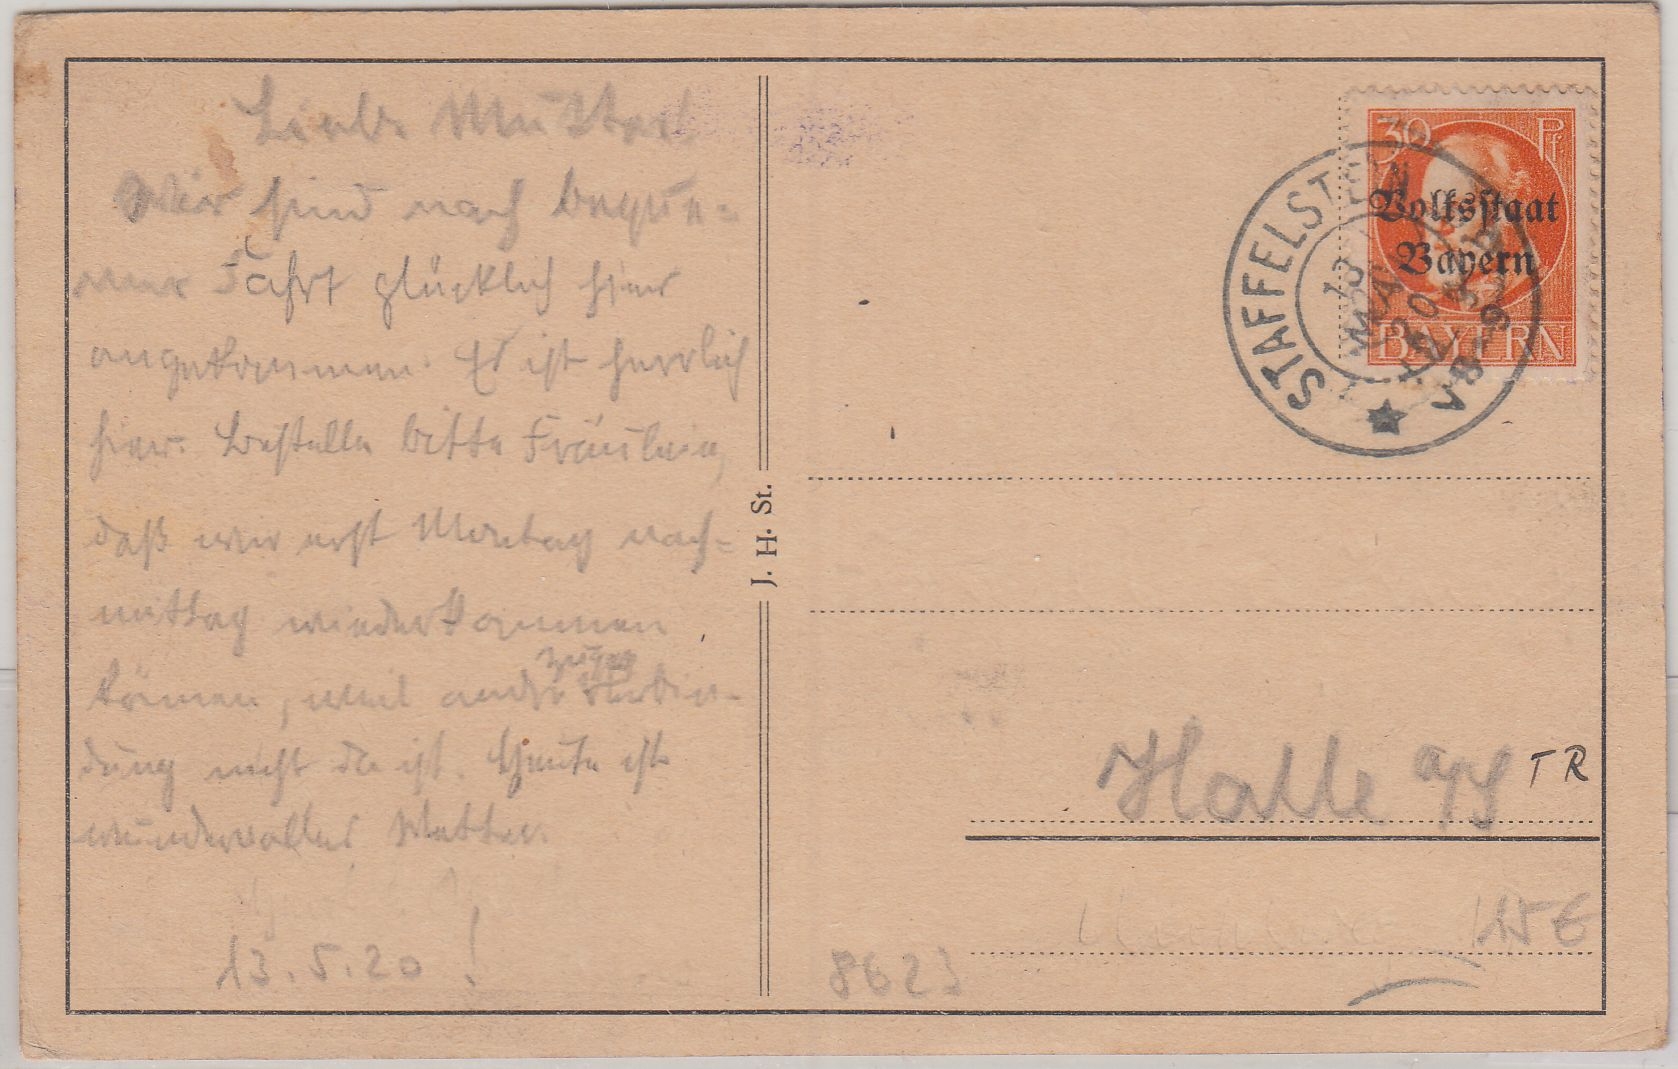 Liebe Mutter!
Wir sind nach beque-
mer Fahrt glücklich hier
angekommen. Es ist herrlich
hier. Bestelle bitte Fräulein,
daß wir erst Montag nach-
mittag wiederkommen
können, weil andre Zug
verbin-
dung nicht da ist. Heute ist
wundervolles Wetter.
13.5.20!
J. H. St.
30 Pf
Volksstaat
Bayern
BAYERN
STAFFELSTEIN
13 MAI 20
Halle a/S
TR
15€
8623